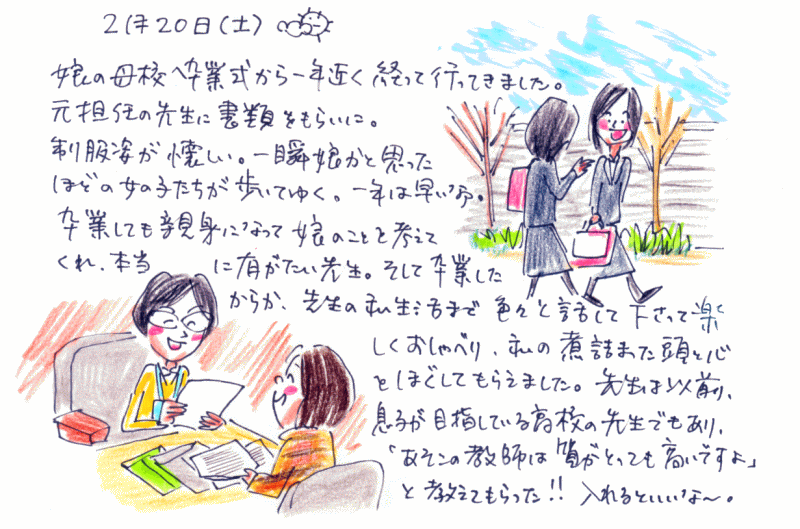 2月20日(土)
娘の母校へ卒業式から一年近く経って行ってきました。
元担任の先生に書類をもらいに。
制服姿が懐しい。一瞬娘かと思った
ほどの女の子たちが歩いてゆく。一年は早いなぁ。
卒業しても親身になって娘のことを考えて
くれ、本当に有がたい先生。そして卒業した
からか、先生の私生活まで色々と話して下さって楽
しくおしゃべり、私の煮詰まった頭と心
をほぐしてもらえました。先生は以前、
息子が目指している高校の先生でもあり、
「あそこの教師は質がとっても高いですよ」
と教えてもらった!!入れるといいな〜。